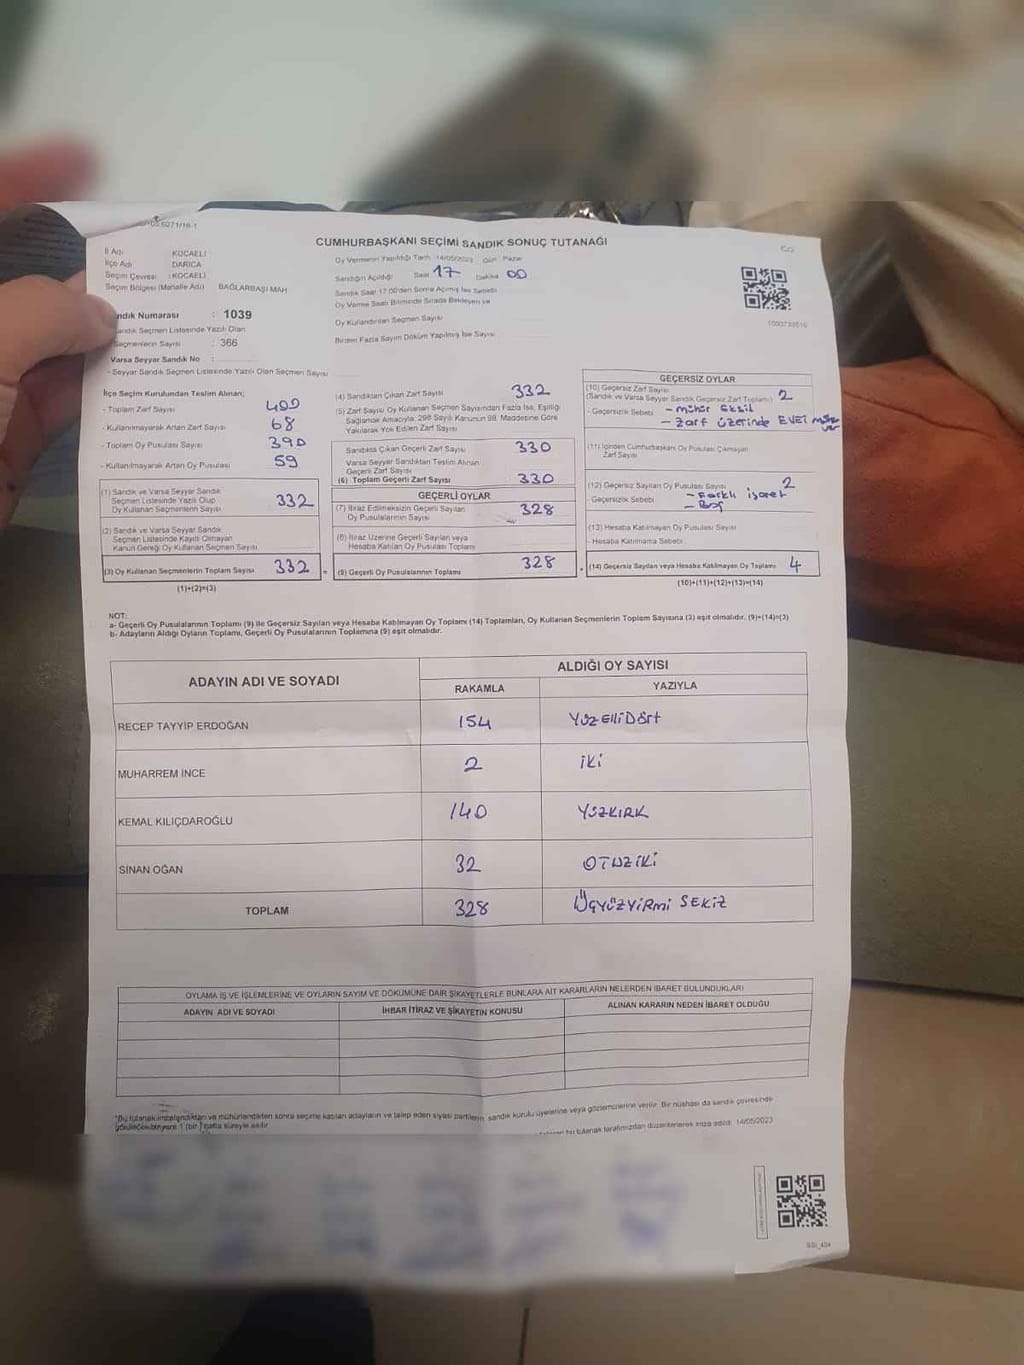 CUMHURBAŞKANI SEÇİMİ SANDIK SONUÇ TUTANAĞI
İl Adı : KOCAELİ
İlçe Adı : DARICA
Seçim Çevresi : KOCAELİ
Seçim Bölgesi (Mahalle Adı) BAĞLARBAŞI MAH
ndık Numarası : 1039
andık Seçmen Listesinde Yazılı Olan
Seçmenlerin Sayısı : 366
Varsa Seyyar Sandık No :
- Seyyar Sandık Seçmen Listesinde Yazılı Olan Seçmen Sayısı
Oy Vermenin Yapıldığı Tarih 14/05/2023 Gün : Pazar
Sandığın Açıldığı Saat 17 Dakika 00
Sandık Saat 17.00'den Sonra Açılmış İse Sebebi
Oy Verme Saati Bitiminde Sırada Bekleyen ve
Oy Kullandırılan Seçmen Sayısı
Birden Fazla Sayım Döküm Yapılmış İse Sayısı
İlçe Seçim Kurulundan Teslim Alınan;
- Toplam Zarf Sayısı 400
- Kullanılmayarak Artan Zarf Sayısı 68
- Toplam Oy Pusulası Sayısı 390
- Kullanılmayarak Artan Oy Pusulası 59
(1) Sandık ve Varsa Seyyar Sandık
Seçmen Listesinde Yazılı Olup
Oy Kullanan Seçmenlerin Sayısı 332
(2) Sandık ve Varsa Seyyar Sandık
Seçmen Listesinde Kayıtlı Olmayan
Kanun Gereği Oy Kullanan Seçmen Sayısı
(3) Oy Kullanan Seçmenlerin Toplam Sayısı 332 =
(1)+(2)=(3)
(4) Sandıktan Çıkan Zarf Sayısı 332
(5) Zarf Sayısı Oy Kullanan Seçmen Sayısından Fazla İse, Eşitliği
Sağlamak Amacıyla, 298 Sayılı Kanunun 98. Maddesine Göre
Yakılarak Yok Edilen Zarf Sayısı
Sandıkta Çıkan Geçerli Zarf Sayısı 330
Varsa Seyyar Sandıktan Teslim Alınan
Geçerli Zarf Sayısı
(6) Toplam Geçerli Zarf Sayısı 330
GEÇERLİ OYLAR
(7) İtiraz Edilmeksizin Geçerli Sayılan
Oy Pusulalarının Sayısı 328
(8) İtiraz Üzerine Geçerli Sayılan veya
Hesaba Katılan Oy Pusulası Toplamı
(9) Geçerli Oy Pusulalarının Toplamı 328 +
GEÇERSİZ OYLAR
(10) Geçersiz Zarf Sayısı
(Sandık ve Varsa Seyyar Sandık Geçersiz Zarf Toplamı) 2
- Geçersizlik Sebebi - mühür Eksik
- Zarf üzerinde EVET
(11) İçinden Cumhurbaşkanı Oy Pusulası Çıkmayan
Zarf Sayısı
(12) Geçersiz Sayılan Oy Pusulası Sayısı 2
- Geçersizlik Sebebi - Farklı işaret
- Boş
(13) Hesaba Katılmayan Oy Pusulası Sayısı
- Hesaba Katılmama Sebebi
(14) Geçersiz Sayılan veya Hesaba Katılmayan Oy Toplamı 4
(10)+(11)+(12)+(13)=(14)
NOT:
a- Geçerli Oy Pusulalarının Toplamı (9) ile Geçersiz Sayılan veya Hesaba Katılmayan Oy Toplamı (14) Toplamları, Oy Kullanan Seçmenlerin Toplam Sayısına (3) eşit olmalıdır. (9)+(14)=(3)
b- Adayların Aldığı Oyların Toplamı, Geçerli Oy Pusulalarının Toplamına (9) eşit olmalıdır.
ADAYIN ADI VE SOYADI ALDIĞI OY SAYISI
RAKAMLA YAZIYLA
RECEP TAYYİP ERDOĞAN 154 YÜZElliDÖrt
MUHARREM İNCE 2 iki
KEMAL KILIÇDAROĞLU 140 YÜZKIRK
SİNAN OĞAN 32 OTUZİKİ
TOPLAM 328 ÜÇYÜZYİRMİ SEKİZ
OYLAMA İŞ VE İŞLEMLERİNE VE OYLARIN SAYIM VE DÖKÜMÜNE DAİR ŞİKAYETLERLE BUNLARA AİT KARARLARIN NELERDEN İBARET BULUNDUKLARI
ADAYIN ADI VE SOYADI İHBAR İTİRAZ VE ŞİKAYETİN KONUSU ALINAN KARARIN NEDEN İBARET OLDUĞU
*Bu tutanak imzalandıktan ve mühürlendikten sonra seçime katılan adayların ve talep eden siyasi partilerin sandık kurulu üyelerine veya gözlemcilerine verilir. Bir nüshası da sandık çevresinde
görülebilen bir yere 1 (bir) hafta süreyle asılır
bu tutanak tarafımızdan düzenlenerek imza edildi. 14/05/2023